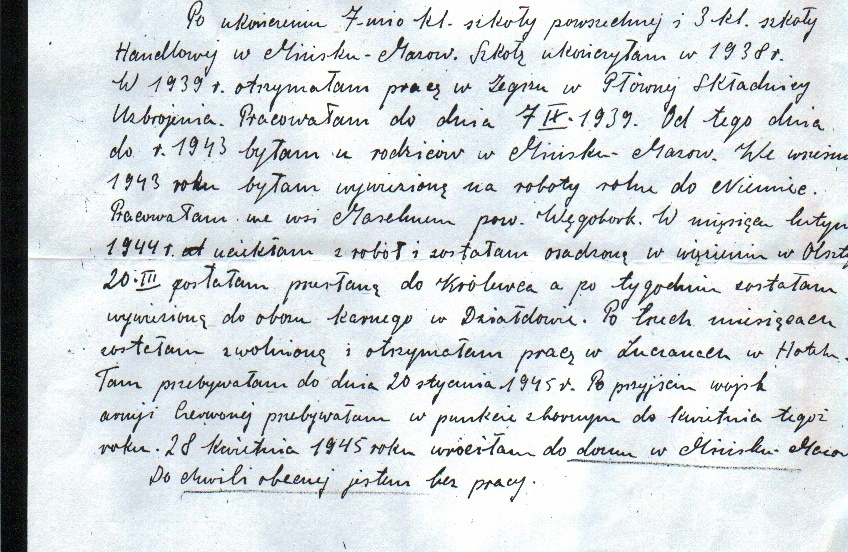 Po ukończeniu 7-mio kl. szkoły powszechnej i 3 kl. szkoły
Handlowej w Mińsku-Mazow. Szkołę ukończyłam w 1938 r.
W 1939 r. otrzymałam pracę w Zegrzu w Głównej Składnicy
Uzbrojenia. Pracowałam do dnia 7 IX. 1939. Od tego dnia
do r. 1943 byłam u rodziców w Mińsku-Mazow. We wrześni
1943 roku byłam wywiezioną na roboty rolne do Niemiec.
Pracowałam we wsi pow. Węgobork. W miesiącu lutym
1944 r. uciekłam z robót i zostałam osadzoną w więzieniu w Olszty
20.III zostałam przesłaną do Królewca a po tygodniu zostałam
wywiezioną do obozu karnego w Działdowie. Po trzech miesiącach
zostałam zwolnioną i otrzymałam pracę w Lucianach w
Tam przebywałam do dnia 20 stycznia 1945 r. Po przyjściu wojsk
armji Czerwonej przebywałam w punkcie zbornym do kwietnia tegoż
roku. 28 kwietnia 1945 roku wróciłam do domu w Mińsku-Mazow
Do chwili obecnej jestem bez pracy.